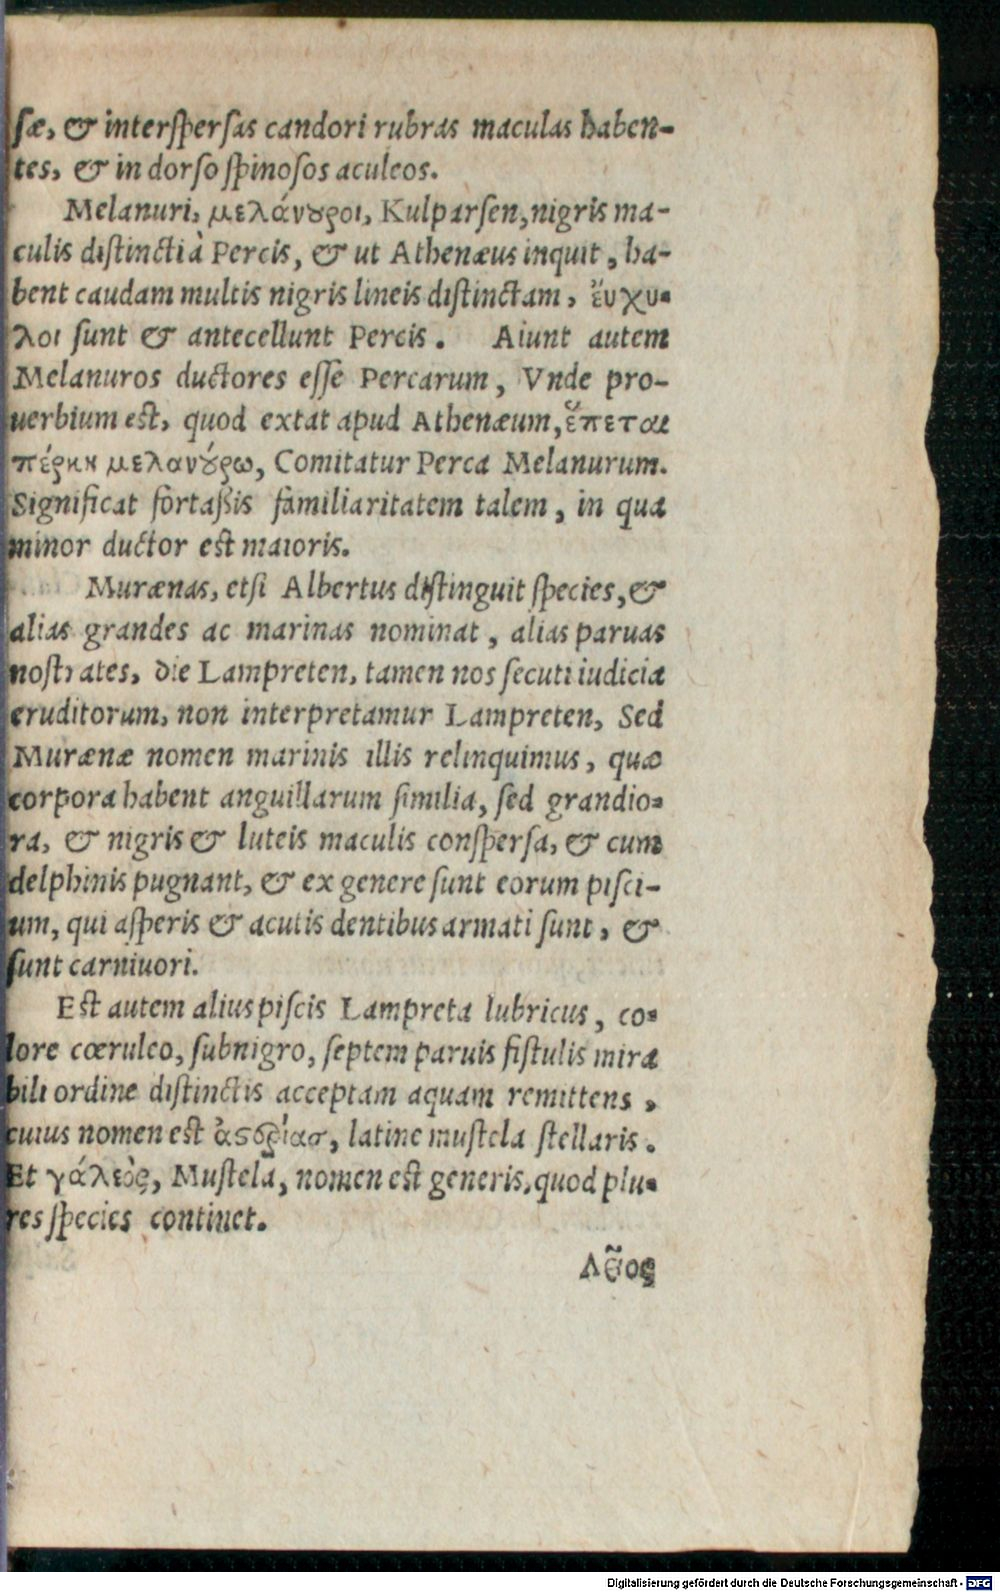 sæ, & interspersas candori rubras maculas haben-
tes, & in dorso spinosos aculeos.
Melanuri, μελάνουροι, Kulparsen, nigris ma-
culis distincti à Percis, & ut Athenæus inquit, ha-
bent caudam multis nigris lineis distinctam, ἔυχυ-
λοι sunt & antecellunt Percis. Aiunt autem
Melanuros ductores esse Percarum, Vnde pro-
uerbium est, quod extat apud Athenæum, ἕπεται
πέρκη μελανούρω, Comitatur Perca Melanurum.
Significat fortaßis familiaritatem talem, in qua
minor ductor est maioris.
Murænas, etsi Albertus distinguit species, &
alias grandes ac marinas nominat, alias paruas
nostrates, die Lampreten, tamen nos secuti iudicia
eruditorum, non interpretamur Lampreten, Sed
Murænæ nomen marinis illis relinquimus, quæ
corpora habent anguillarum similia, sed grandio-
ra, & nigris & luteis maculis conspersa, & cum
delphinis pugnant, & ex genere sunt eorum pisci-
um, qui asperis & acutis dentibus armati sunt, &
sunt carniuori.
Est autem alius piscis Lampreta lubricus, co-
lore cœruleo, subnigro, septem paruis fistulis mira
bili ordine distinctis acceptam aquam remittens,
cuius nomen est ἀστρίας, latine mustela stellaris.
Et γάλεὸς, Mustela, nomen est generis, quod plu-
res species continet.
Digitalisierung gefördert durch die Deutsche Forschungsgemeinschaft - DFG